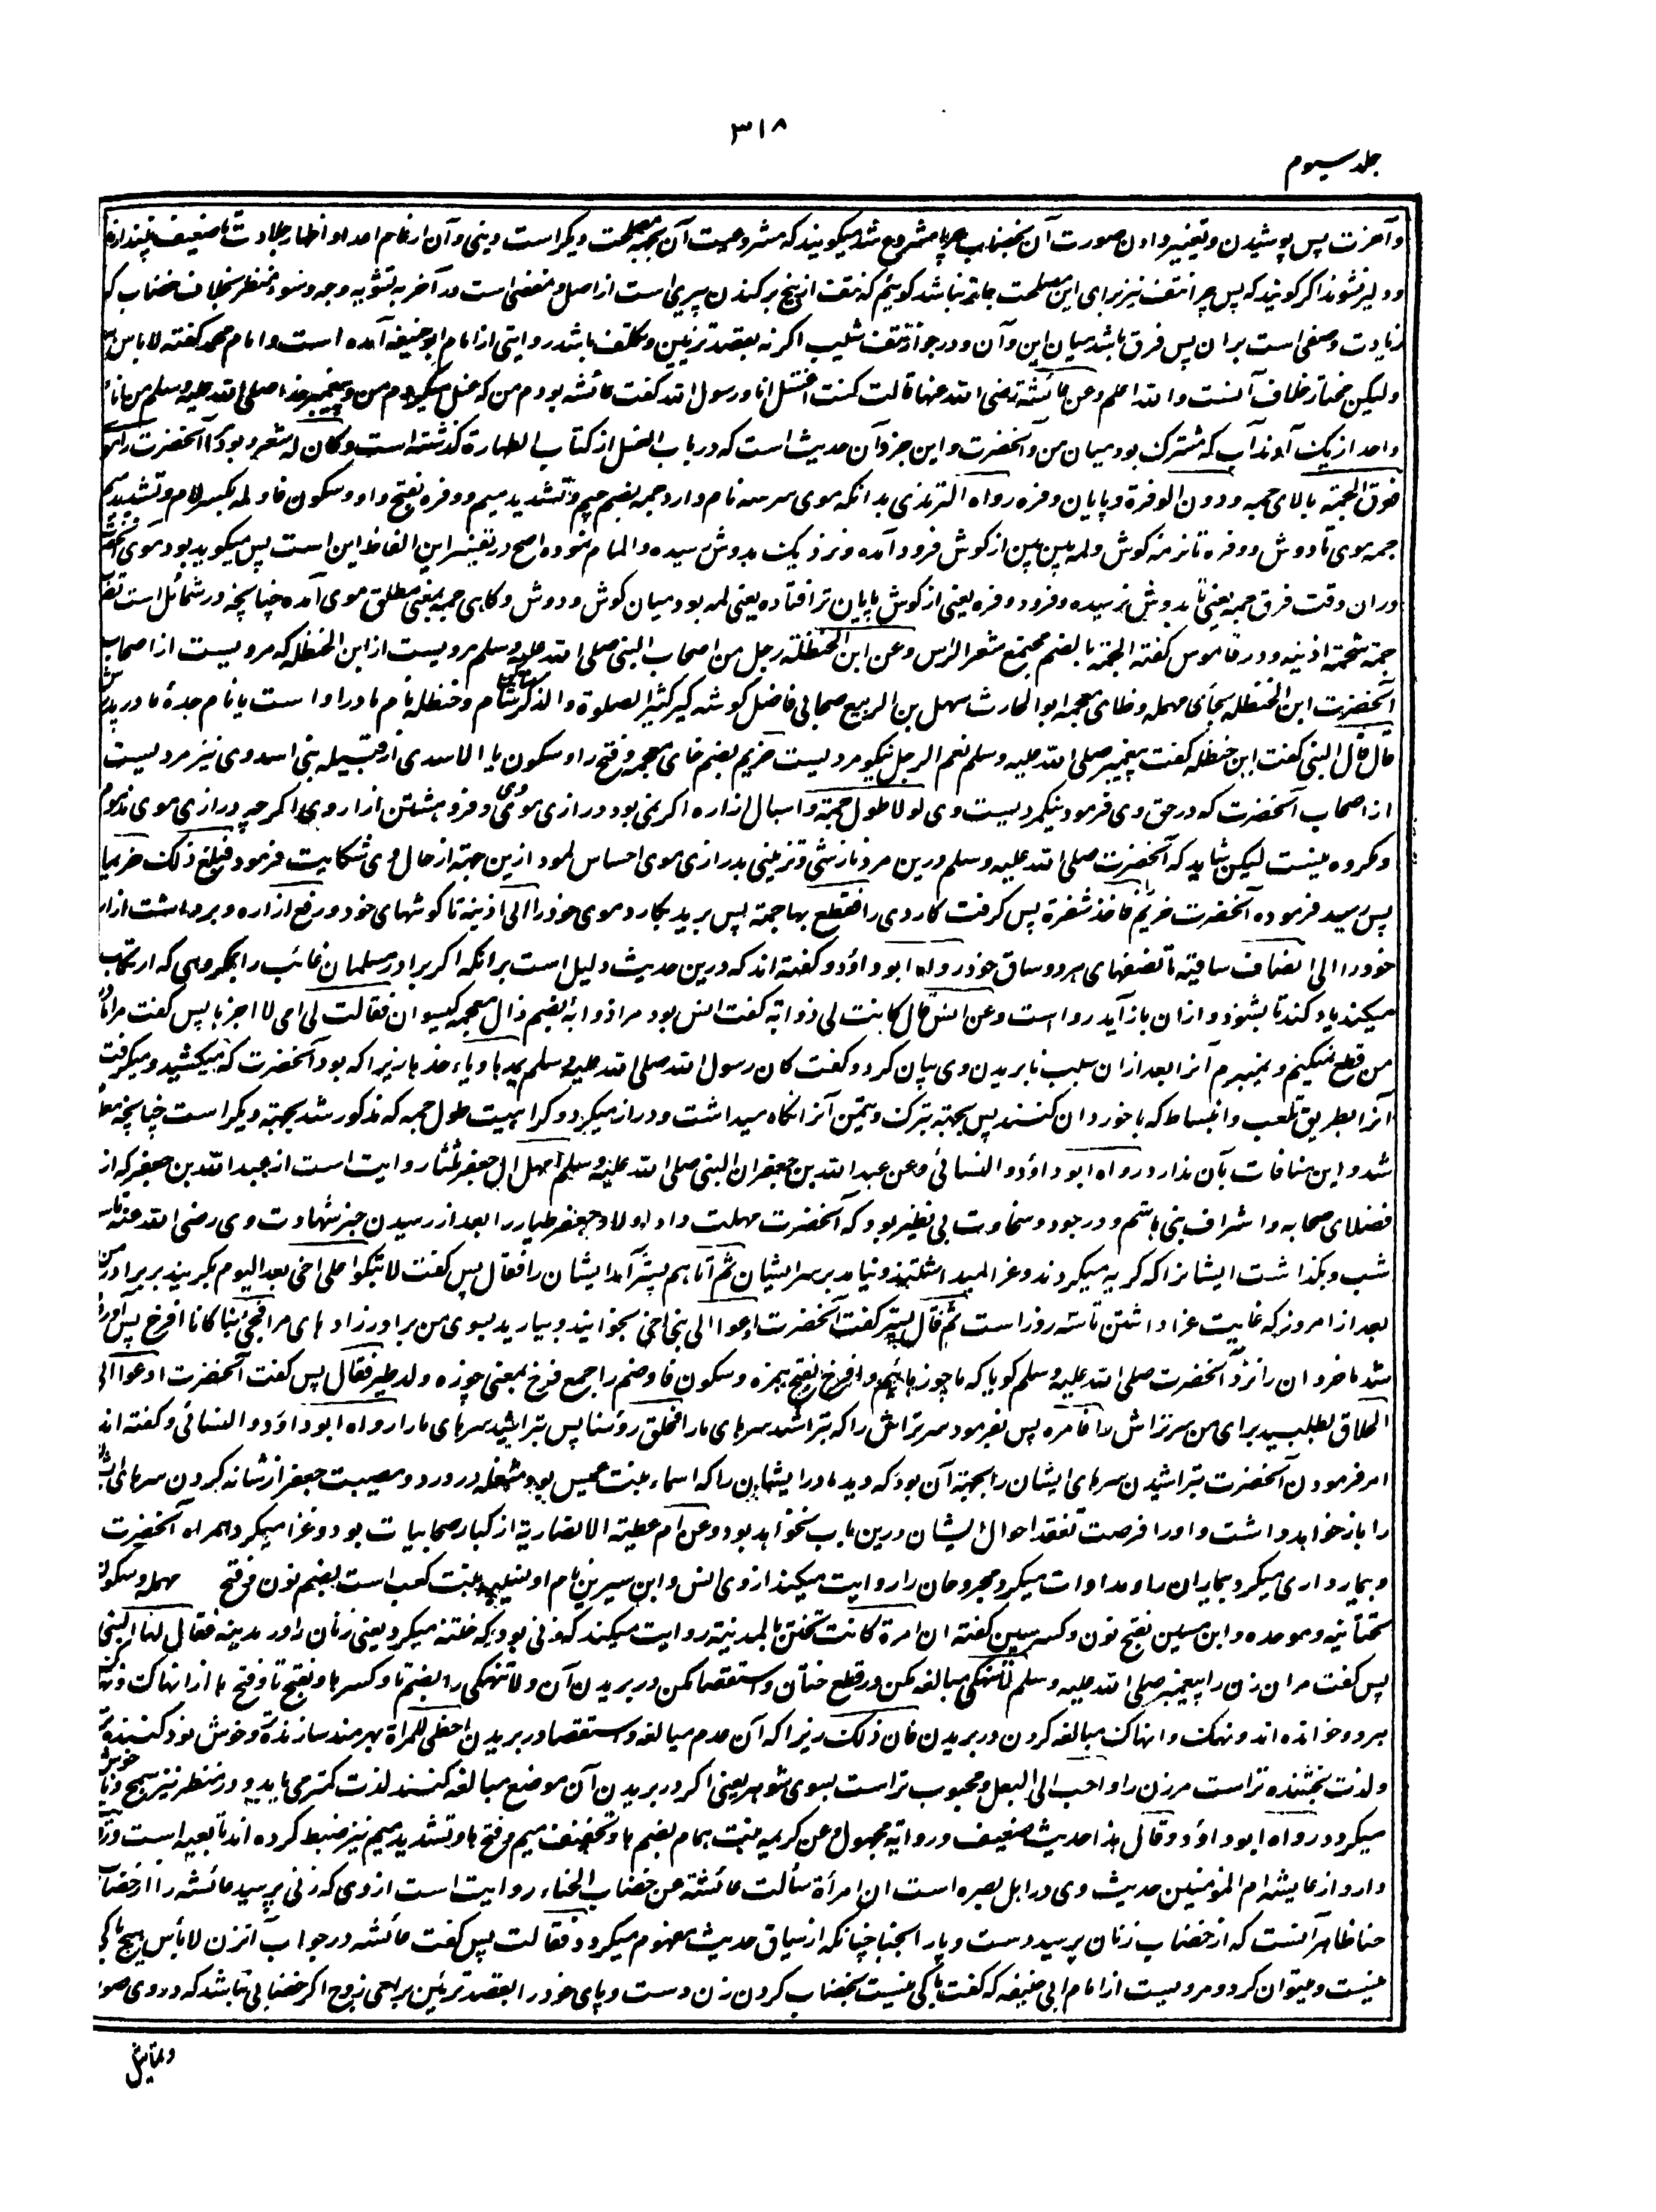 ۳۱۸
جلد سیوم
و آخرت پس پوشیدن و تغییر دادن صورت آن بخضاب چرا مشروع شد میگویند که مشروعیت آن بجهة مصلحت دیگر است دینی و آن ارغام اعدا و اظهار جلادت تا ضعیف نپندارند
و دلیر نشوند اگر گویند که پس چرا نتف نیز برای این مصلحت جائز نباشد گوئیم که نتف از بیخ برکندن پیری است از اصل و مفضی است در آخر به تشویه وجه و سوء منظر بخلاف خضاب که
زیادت وصفی است بران پس فرق باشد میان این و آن و در جواز نتف شیب اگر نه بقصد تزیین و تکلف باشد روایتی از امام ابو حنیفه آمده است و امام محمد گفته لا باس به
ولیکن مختار خلاف آنست والله اعلم وعن عائشة رضی الله عنها قالت کنت اغتسل انا ورسول الله گفت عائشه بودم من که غسل میکردم من و پیغمبر خدا صلی الله علیه وسلم من اناء
واحد از یک آوند آب که مشترک بود میان من و آنحضرت و این جزو آن حدیث است که در باب الغسل از کتاب الطهارة گذشته است وکان له شعر و بود مر آنحضرت را موی
فوق الجمة بالای جمه ودون الوفرة و پایان وفره رواه الترمذی بدانکه موی سر سه نام دارد جمه بضم جیم و تشدید میم و وفره بفتح واو و سکون فا و لمه بکسر لام و تشدید میم
جمه موی تا دوش و وفره تا نرمه گوش و لمه بین بین از گوش فرود آمده و نزدیک بدوش رسیده و المام نموده اصح در تفسیر این الفاظ این است پس میگوید بود موی آنحضرت
دران وقت فوق جمه یعنی تا بدوش نرسیده و فرود وفره یعنی از گوش پایان تر افتاده یعنی لمه بود میان گوش و دوش و گاهی جمه بمعنی مطلق موی آمده چنانچه در شمائل است
جمته شحمة اذنیه و در قاموس گفته الجمة بالضم مجتمع شعر الراس وعن ابن الحنظلة رجل من اصحاب النبی صلی الله علیه وسلم مرویست از ابن الحنظله که مردیست از اصحاب
آنحضرت ابن الحنظله بحای مهمله و ظای معجمه ابو الحارث سهل بن الربیع صحابی فاضل گوشه گیر کثیر الصلوة والذکر شام و حنظله نام مادر اوست یا نام جدهٔ مادر پدرش
قال قال النبی گفت ابن حنظله گفت پیغمبر صلی الله علیه وسلم نعم الرجل نیکو مردیست خریم بضم خای معجمه و فتح را و سکون یا الاسدی از قبیله بنی اسد وی نیز مردیست
از اصحاب آنحضرت که در حق وی فرمود نیکمردیست وی لولا طول جمته واسبال ازاره اگر نمی بود درازی موی وی و فرو هشتن ازار وی اگر چه درازی موی مذموم
و مکروه نیست لیکن شاید که آنحضرت صلی الله علیه وسلم درین مرد نازشی و تزیینی بدرازی موی احساس نمود ازین جهة از حال وی شکایت فرمود فبلغ ذلک خریما
پس رسید فرموده آنحضرت خریم را فاخذ شفرة پس گرفت کاردی را فقطع بها جمته پس برید بکارد موی خود را الی اذنیه تا گوشهای خود ورفع ازاره و برداشت ازار
خود را الی انصاف ساقیه تا نصفهای هر دو ساق خود رواه ابو داؤد و گفته اند که درین حدیث دلیل است برانکه اگر برادر مسلمان غائب را بمکروهی که ارتکاب
میکند یاد کند تا بشنود و ازان باز آید رواست وعن انس قال کانت لی ذوابة گفت انس بود مرا ذوابهٔ بضم ذال معجمه گیسو ان فقالت لی امی لا اجزها پس گفت مرا مادر
من قطع نمیکنم و نمیبرم آنرا بعد ازان سبب نابریدن وی بیان کرد و گفت کان رسول الله صلی الله علیه وسلم یمدها ویاخذها زیرا که بود آنحضرت که میکشید و میگرفت
آنرا بطریق تلعب و انبساط که با خوردان کنند پس بجهة تبرک و تیمن آنرا نگاه میداشت و دراز میکرد و کراهیت طول جمه که مذکور شد بجهة دیگر است چنانچه معلوم
شد و این منافات بآن ندارد رواه ابو داؤد والنسائی وعن عبد الله بن جعفر ان النبی صلی الله علیه وسلم امهل ال جعفر ثلثا روایت است از عبد الله بن جعفر که از
فضلای صحابه و اشراف بنی هاشم و در جود و سخاوت بی نظیر بود که آنحضرت مهلت داد اولاد جعفر طیار را بعد از رسیدن خبر شهادت وی رضی الله عنه تا سه
شب و بگذاشت ایشانرا که گریه میکردند و عزا میداشتند و نیامد بر سر ایشان ثم اتاهم پستر آمد ایشان را فقال پس گفت لا تبکوا علی اخی بعد الیوم بگریند بر برادر من
بعد از امروز که غایت عزا داشتن تا سه روز است ثم قال پستر گفت آنحضرت ادعوا الی بنی اخی بخوانید و بیارید بسوی من برادر زادهای مرا فجیٔ بنا کانا افرخ پس آورده
شد ما خردان را نزد آنحضرت صلی الله علیه وسلم گویا که ما چوزهائیم و افرخ بفتح همزه و سکون فا و ضم را جمع فرخ بمعنی چوزه ولد طیر فقال پس گفت آنحضرت ادعوا الی
الحلاق بطلبید برای من سرتراش را فامره پس بفرمود سرتراش را که بتراشد سرهای ما را فحلق روسنا پس تراشید سرهای ما را رواه ابو داؤد والنسائی و گفته اند
امر فرمودن آنحضرت بتراشیدن سرهای ایشان را بجهة آن بود که دید مادر ایشان را که اسماء بنت عمیس بود مشغله در درد و مصیبت جعفر از شانه کردن سرهای ایشان
را باز خواهد داشت و او را فرصت تفقد احوال ایشان درین باب نخواهد بود وعن ام عطیة الانصاریة از کبار صحابیات بود و غزا میکرد همراه آنحضرت
و بیمارداری میکرد بیماران را و مداوات میکرد مجروحان را روایت میکند ازوی انس و ابن سیرین نام او نسیبه بنت کعب است بضم نون و فتح مهمله و سکون
تحتانیه و موحده و ابن معین بفتح نون و کسر سین گفته ان امرة کانت تختن بالمدینة روایت میکند که زنی بود که ختنه میکرد یعنی زنان را در مدینه فقال لها النبی
پس گفت مران زن را پیغمبر صلی الله علیه وسلم لا تنهکی مبالغه مکن در قطع ختان و استقصا مکن در بریدن آن ولا تنهکی را بضم تا و کسر ها و بفتح تا و فتح ها از انهاک و نهک
هر دو خوانده اند و نهک و انهاک مبالغه کردن در بریدن فان ذلک زیرا که آن عدم مبالغه و استقصا در بریدن احظی للمراة بهرمند سازنده و خوش نود کننده
ولذت بخشنده تر است مرزن را واحب الی البعل و محبوب تر است بسوی شوهر یعنی اگر در بریدن آن موضع مبالغه کنند لذت کمتر می یابد و در منظر نیز سمج و ناخوش
میگردد رواه ابو داؤد وقال هذا حدیث ضعیف ورواته مجهول وعن کریمة بنت همام بضم ها و تخفیف میم و فتح ها و تشدید میم نیز ضبط کرده اند تابعیه است
دارد از عایشه ام المؤمنین حدیث وی در اهل بصره است ان امرأة سألت عائشة عن خضاب الحناء روایت است از وی که زنی پرسید عائشه را از خضاب
حنا ظاهر آنست که از خضاب زنان پرسید دست و پا را بحنا چنانکه از سیاق حدیث مفهوم میگردد فقالت پس گفت عائشه در جواب آنزن لا باس هیچ باکی
نیست و میتوان کرد و مرویست از امام ابی حنیفه که گفت باکی نیست بخضاب کردن زن دست و پای خود را بقصد تزئین برای زوج اگر خضابی نباشد که در وی صور
و تماثیل